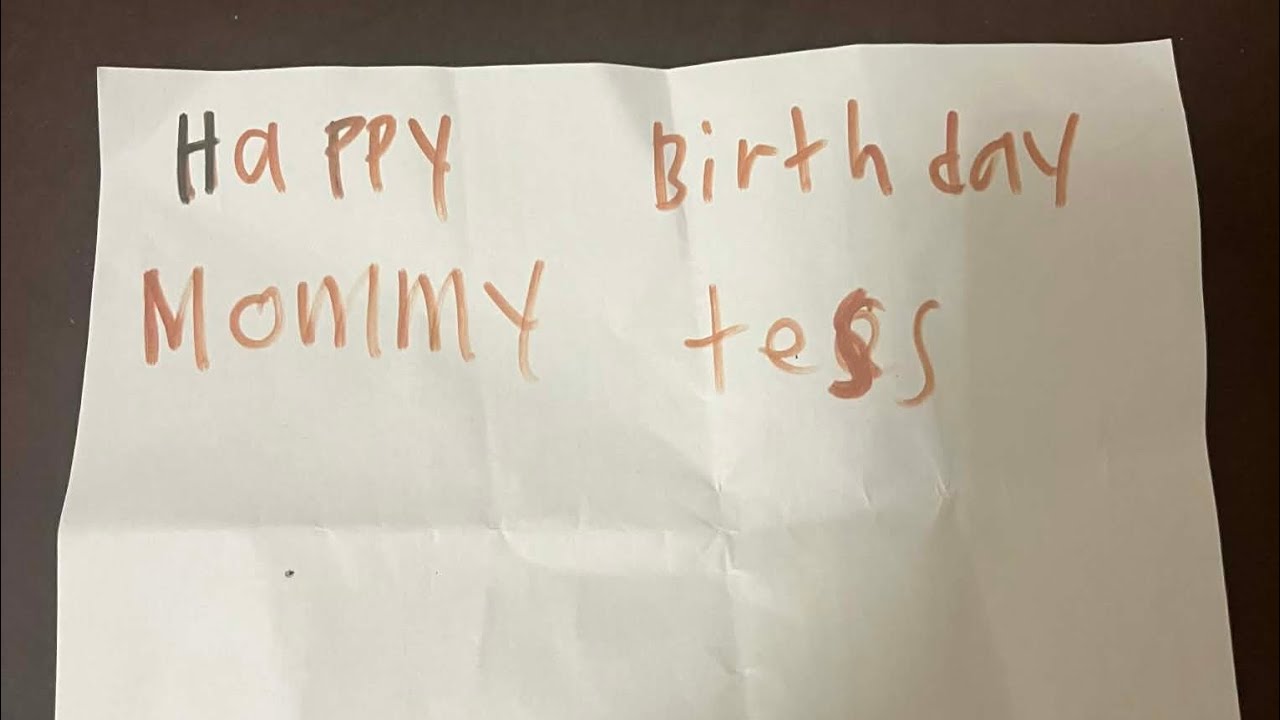 Happy Birthday
Mommy tess